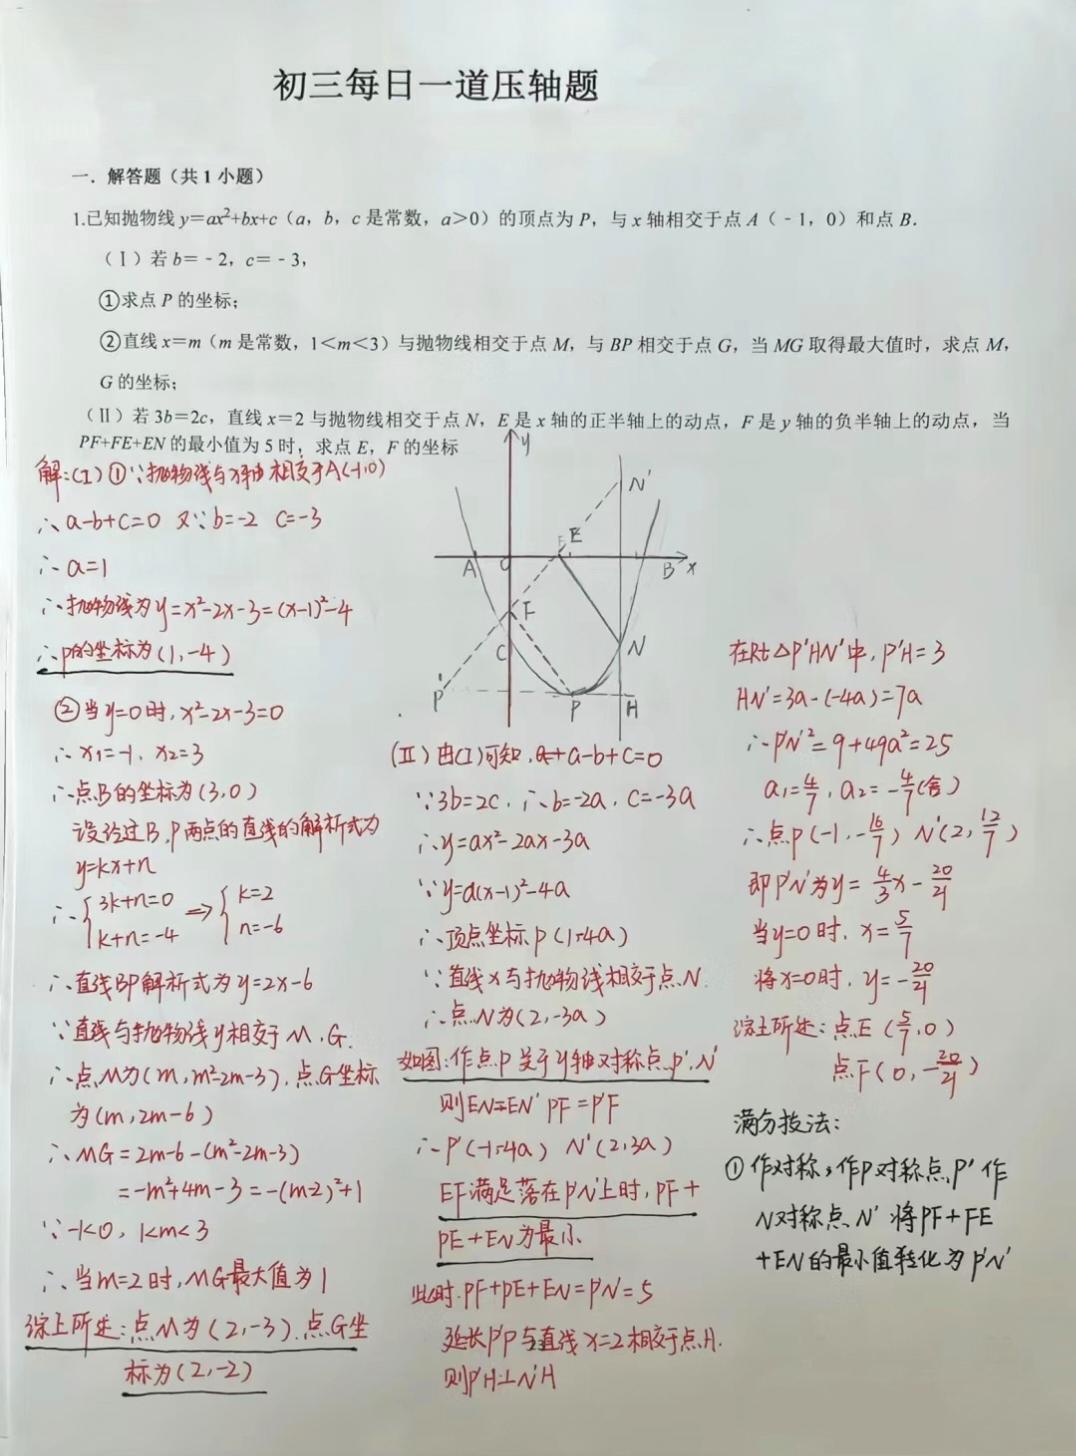 初三每日一道压轴题
一．解答题（共1小题）
1.已知抛物线y＝ax²+bx+c（a，b，c是常数，a＞0）的顶点为P，与x轴相交于点A（﹣1，0）和点B．
（Ⅰ）若b＝﹣2，c＝﹣3，
①求点P的坐标；
②直线x＝m（m是常数，1＜m＜3）与抛物线相交于点M，与BP相交于点G，当MG取得最大值时，求点M，
G的坐标；
（Ⅱ）若3b＝2c，直线x＝2与抛物线相交于点N，E是x轴的正半轴上的动点，F是y轴的负半轴上的动点，当
PF+FE+EN的最小值为5时，求点E，F的坐标
解:(I)①∵抛物线与x轴相交于A(-1,0)
∴a-b+c=0 又∵b=-2 c=-3
∴a=1
∴抛物线为y=x²-2x-3=(x-1)²-4
∴P的坐标为(1,-4)
②当y=0时,x²-2x-3=0
∴x₁=-1, x₂=3
∴点B的坐标为(3,0)
设经过B,P两点的直线的解析式为
y=kx+n
∴{3k+n=0 ⇒ {k=2
k+n=-4 n=-6
∴直线BP解析式为y=2x-6
∵直线与抛物线y相交于M,G.
∴点M为(m,m²-2m-3),点G坐标
为(m,2m-6)
∴MG=2m-6-(m²-2m-3)
=-m²+4m-3=-(m-2)²+1
∵-1<0, 1<m<3
∴当m=2时,MG最大值为1
综上所述:点M为(2,-3).点G坐
标为(2,-2)
y
N'
E
A
O
B
x
F
C
N
P'
P
H
(II)由(I)可知,a-b+c=0
∵3b=2c,∴b=-2a,c=-3a
∴y=ax²-2ax-3a
∵y=a(x-1)²-4a
∴顶点坐标P(1,-4a)
∵直线x与抛物线相交于点N.
∴点N为(2,-3a)
如图:作点P关于y轴对称点P',N'
则EN=EN' PF=P'F
∴P'(-1,-4a) N'(2,3a)
EF满足落在P'N'上时,PF+
PE+EN为最小.
此时.PF+PE+EN=P'N'=5
延长P'P与直线x=2相交于点H.
则P'H⊥N'H
在Rt△P'HN'中,P'H=3
HN'=3a-(-4a)=7a
∴P'N'²=9+49a²=25
a₁=4/7, a₂=-4/7(舍)
∴点P(-1,-16/7) N'(2,12/7)
即P'N'为y=4/3x-20/21
当y=0时,x=5/7
将x=0时,y=-20/21
综上所述:点E(5/7,0)
点F(0,-20/21)
满分技法:
①作对称,作P对称点P'作
N对称点N'将PF+FE
+EN的最小值转化为P'N'